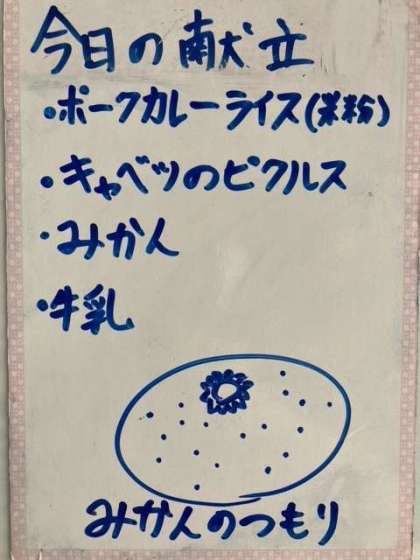 今日の献立
・ポークカレーライス(米粉)
・キャベツのピクルス
・みかん
・牛乳
みかんのつもり